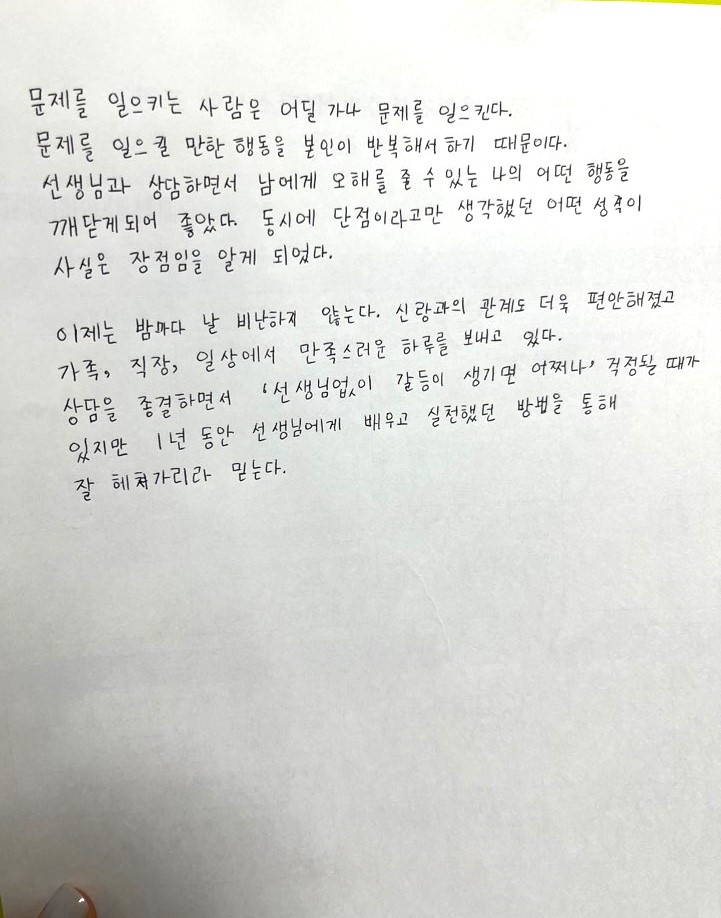 문제를 일으키는 사람은 어딜 가나 문제를 일으킨다.
문제를 일으킬 만한 행동을 본인이 반복해서 하기 때문이다.
선생님과 상담하면서 남에게 오해를 줄 수 있는 나의 어떤 행동을
깨닫게 되어 좋았다. 동시에 단점이라고만 생각했던 어떤 성격이
사실은 장점임을 알게 되었다.
이제는 밤마다 날 비난하지 않는다. 신랑과의 관계도 더욱 편안해졌고
가족, 직장, 일상에서 만족스러운 하루를 보내고 있다.
상담을 종결하면서 '선생님없이 갈등이 생기면 어쩌나' 걱정될 때가
있지만 1년 동안 선생님에게 배우고 실천했던 방법을 통해
잘 헤쳐가리라 믿는다.